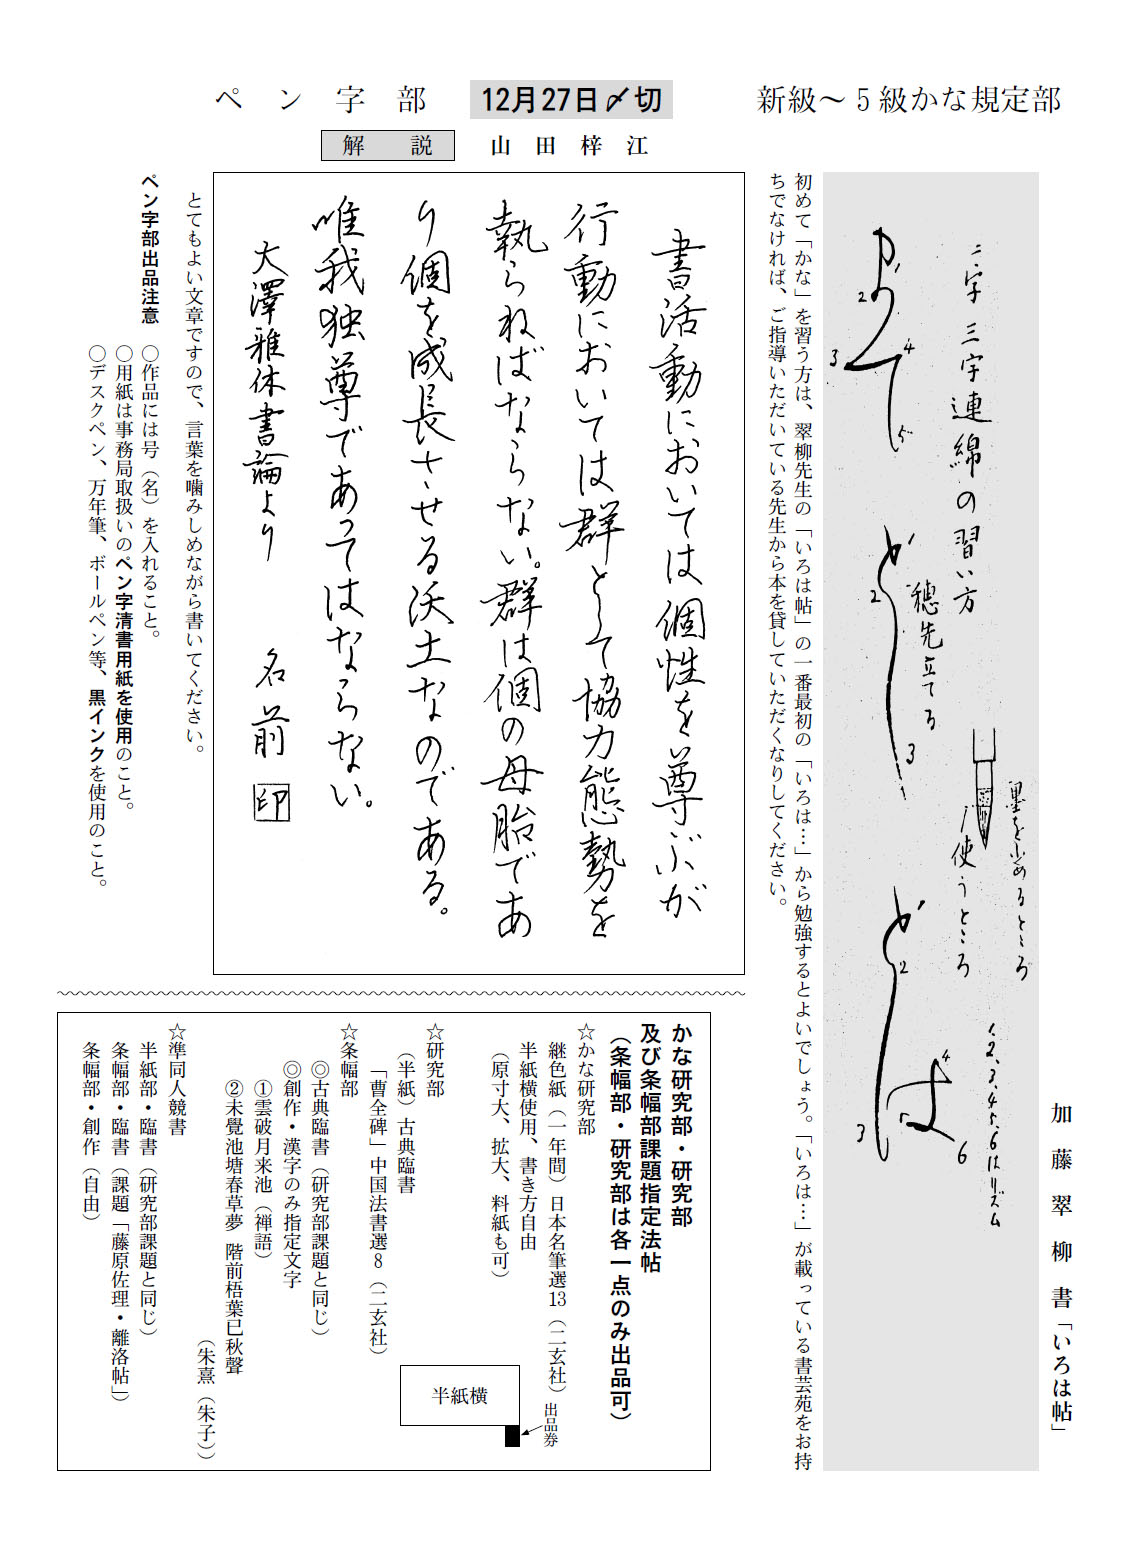 新級〜5級かな規定部
加藤翠柳書「いろは帖」
墨を止めるところ
使うところ
1.2.3.4.5.6はリズム
二字 三字連綿の習い方
穂先立てる
1
2
3
4
5
1
2
3
2
3
4
5
6
初めて「かな」を習う方は、翠柳先生の「いろは帖」の一番最初の「いろは…」から勉強するとよいでしょう。「いろは…」が載っている書芸苑をお持
ちでなければ、ご指導いただいている先生から本を貸していただくなりしてください。
ペン字部
12月27日〆切
解説
山田梓江
書活動においては個性を尊ぶが
行動においては群として協力態勢を
執らねばならない。群は個の母胎であ
り個を成長させる沃土なのである。
唯我独尊であってはならない。
大澤雅休書論より 名前 印
とてもよい文章ですので、言葉を噛みしめながら書いてください。
ペン字部出品注意
○作品には号（名）を入れること。
○用紙は事務局取扱いのペン字清書用紙を使用のこと。
○デスクペン、万年筆、ボールペン等、黒インクを使用のこと。
かな研究部・研究部
及び条幅部課題指定法帖
（条幅部・研究部は各一点のみ出品可）
☆かな研究部
継色紙（一年間）日本名筆選13（二玄社）
半紙横使用、書き方自由
（原寸大、拡大、料紙も可）
半紙横
出品券
☆研究部
（半紙）古典臨書
「曹全碑」中国法書選8（二玄社）
☆条幅部
◎古典臨書（研究部課題と同じ）
◎創作・漢字のみ指定文字
①雲破月来池（禅語）
②未覺池塘春草夢 階前梧葉已秋聲
（朱熹（朱子））
☆準同人競書
半紙部・臨書（研究部課題と同じ）
条幅部・臨書（課題「藤原佐理・離洛帖」）
条幅部・創作（自由）